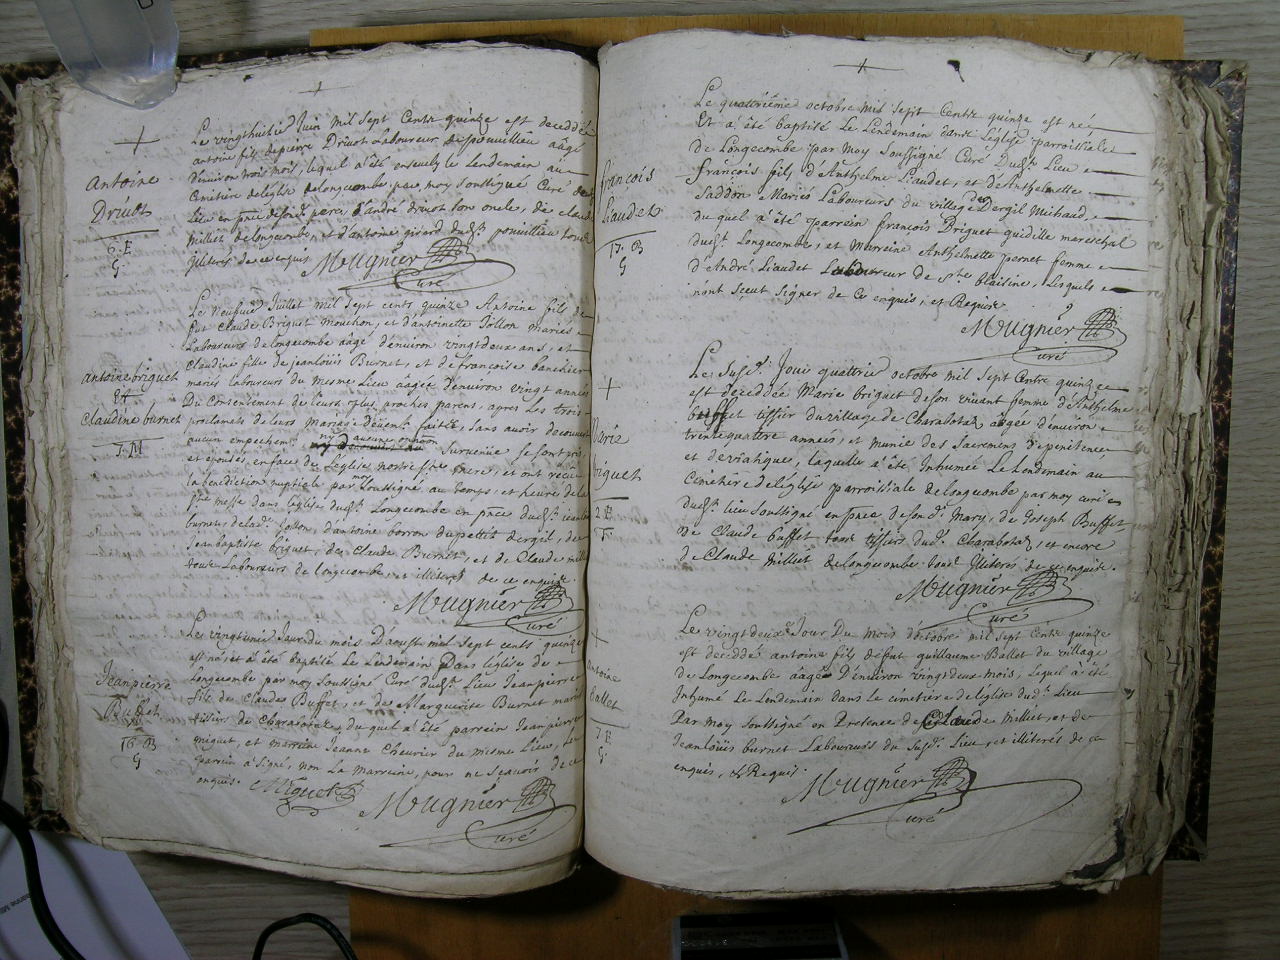 Antoine
Druot
6. E
G
Le vingthuitie Juin mil sept Centz quinze est deceddé
antoine fils de pierre Druot Laboureur de pouvillieu aagé
d'environ trois mois, lequel a été enseuely le lendemain au
Cimitiere de l'eglise de longecombe par moy soussigné Curé dudt
Lieu en pnce de son d. pere, d'andré druot son oncle, de claude
milliet de longecombe, et d'antoine girard dudt pouvillieu tous
illiterés de ce enquis Mugnier
Curé
antoine briguet
Et
Claudine burnet
3. M
Le neufvie Juillet mil sept cents quinze Antoine fils de
fut Claude Briguet Mouchon, et d'antoinette Jollon mariés
Laboureurs de longecombe aagé d'environ vingtdeux ans, et
Claudine fille de jeanloüis Burnet, et de francoise banchier
mariés laboureurs du mesme Lieu aagée d'environ vingt années
Du Consentement de leurs plus proches parens, apres les trois
proclamats de leurs mariage düement faitte, sans avoir decouvert
aucun empechemt ny d'aucune survenüe se sont pris
et épousé, en face de l'eglise nostre ste mere, et ont récu
la benediction nuptiale par moy soussigné au temps, et heure de la
ste messe dans l'eglise dudt Longecombe en pnce dudt jeanloüis
burnet, de lad. Jollon, d'antoine borron du petit dergil, de
Jean baptiste briguet, de Claude Burnet, et de Claude milliet
tous Laboureurs de longecombe, et illiterés de ce enquis.
Mugnier
Curé
Jeanpierre
Buffet
16. B
G
Le vingtunie Jour du mois D'aoust mil sept cents quinze
est né, et a été baptisé Le Lendemain Dans l'eglise de
Longecombe par moy soussigné Curé dudt Lieu Jeanpierre
fils de Claude Buffet, et de Marguerite Burnet mariés
tissiers de Charabotaz, du quel a été parrein Jeanpierre
miguet, et marreine Jeanne Chevrier du mesme Lieu, le
parrein a signé, non La marreine, pour ne scavoir de ce
enquis. Miguet Mugnier
Curé
françois
Liaudet
17. B
G
Le quattriéme octobre mil sept Centz quinze est né,
Et a été baptisé Le Lendemain dans L'église parroissiale
de Longecombe par moy soussigné Curé Dudt Lieu
françois fils d'Anthelme Liaudet, et d'Anthelmette
Saddon Mariés Laboureurs du village de Dergil Michaud,
du quel a été parrein françois Briguet quidille mareschal
dudt Longecombe, et Marreine Anthelmette pernet femme
d'André Liaudet Laboureur de ste blaisine, Lesquels
n'ont sceut signer de Ce enquis, et Requis
Mugnier
Curé
Marie
briguet
2. E
F
Le susdt. Jour quattrie octobre mil sept Centz quinze
est deceddée Marie briguet de son vivant femme d'Anthelme
buffet tissier du village de Charabotaz aagée d'environ
trente quattre années, et munie des sacremens de penitence
et de viatique, laquelle a été Inhumée Le Lendemain au
Cimetiere de l'église parroissiale de longecombe par moy curé
dudt lieu soussigné en pnce de son d. Mary, de Joseph Buffet,
de Claude buffet tous tissiers dud. Charabotaz, et encore
de Claude Milliet de longecombe tous Illiterés de ce enquis.
Mugnier
Curé
antoine
Ballet
7. E
G
Le vingtdeuxe Jour Du mois d'octobre mil sept Centz quinze
est deceddé antoine fils de fut guillaume Ballet du village
de Longecombe aagé D'environ vingtdeux mois, Lequel a été
Inhumé Le Lendemain dans le cimetiere de l'église dud. Lieu
Par moy soussigné en Presence de Claude Milliet, et de
Jeanloüis burnet Laboureurs du susd. Lieu, et illiterés de ce
enquis, & Requis. Mugnier
Curé